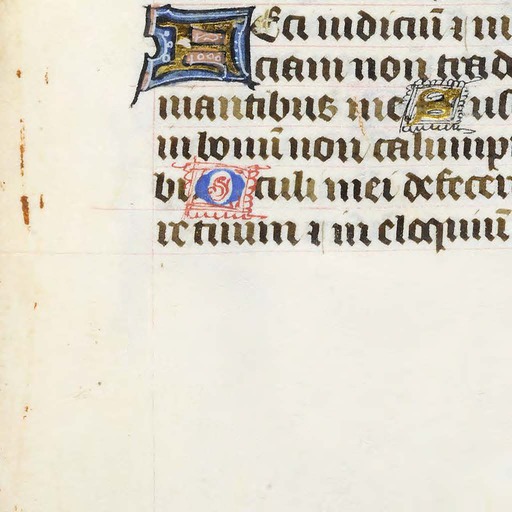 FEci iudiciū ⁊ iu
ciam non trad
mantibus me Sus
in bonū non calump
bi Oculi mei defecer
re tuum ⁊ in eloquiū